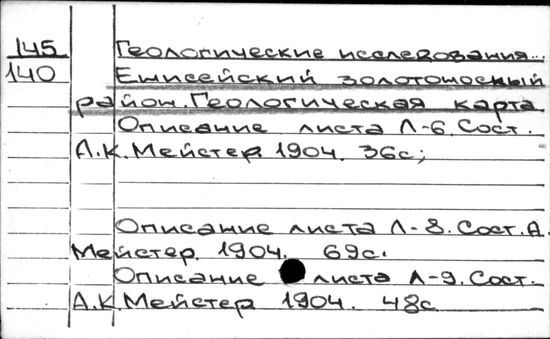 145 Геологические исследования...
140 Енисейский золотоносный
район. Геологическая карта
Описание листа Л-6. Сост.
А.К. Мейстер 1904. 36с;
Описание листа Л-8. Сост. А.
Мейстер 1904. 69с.
Описание листа Л-9. Сост.
А.К. Мейстер 1904. 48с